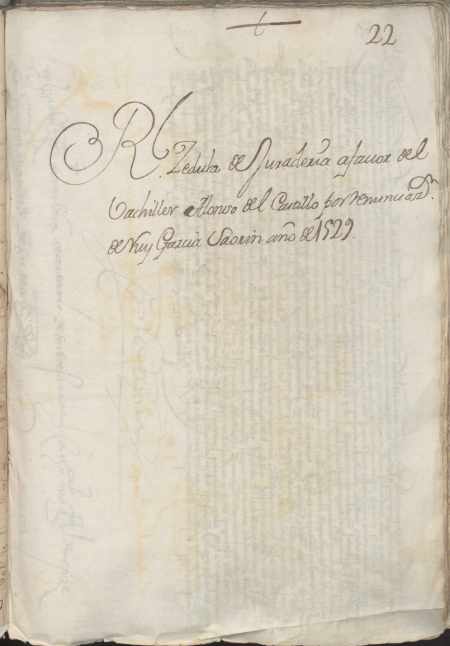 22
Rl. Zedula de Juraderia a fauor del
Vachiller Alonso del Castillo por renunciazn.
de Ruy Garcia Saorin año de 1529.